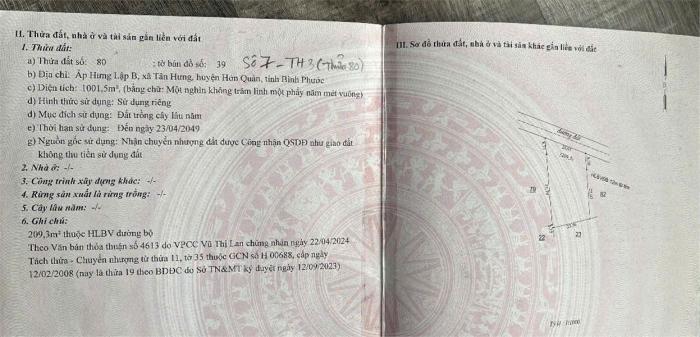 II. Thửa đất, nhà ở và tài sản gắn liền với đất
1. Thửa đất:
a) Thửa đất số: 80 ; tờ bản đồ số: 39 Số 7 - TH3 (Thửa 80)
b) Địa chỉ: Ấp Hưng Lập B, xã Tân Hưng, huyện Hớn Quản, tỉnh Bình Phước
c) Diện tích: 1001,5m², (bằng chữ: Một nghìn không trăm linh một phẩy năm mét vuông)
d) Hình thức sử dụng: Sử dụng riêng
đ) Mục đích sử dụng: Đất trồng cây lâu năm
e) Thời hạn sử dụng: Đến ngày 23/04/2049
g) Nguồn gốc sử dụng: Nhận chuyển nhượng đất được Công nhận QSDĐ như giao đất
không thu tiền sử dụng đất
2. Nhà ở: -/-
3. Công trình xây dựng khác: -/-
4. Rừng sản xuất là rừng trồng: -/-
5. Cây lâu năm: -/-
6. Ghi chú:
209,3m² thuộc HLBV đường bộ
Theo Văn bản thỏa thuận số 4613 do VPCC Vũ Thị Lan chứng nhận ngày 22/04/2024
Tách thửa - Chuyển nhượng từ thửa 11, tờ 35 thuộc GCN số H 00688, cấp ngày
12/02/2008 (nay là thửa 19 theo BĐĐC do Sở TN&MT ký duyệt ngày 12/09/2023)
III. Sơ đồ thửa đất, nhà ở và tài sản khác gắn liền với đất
đường đất
79
82
22
23